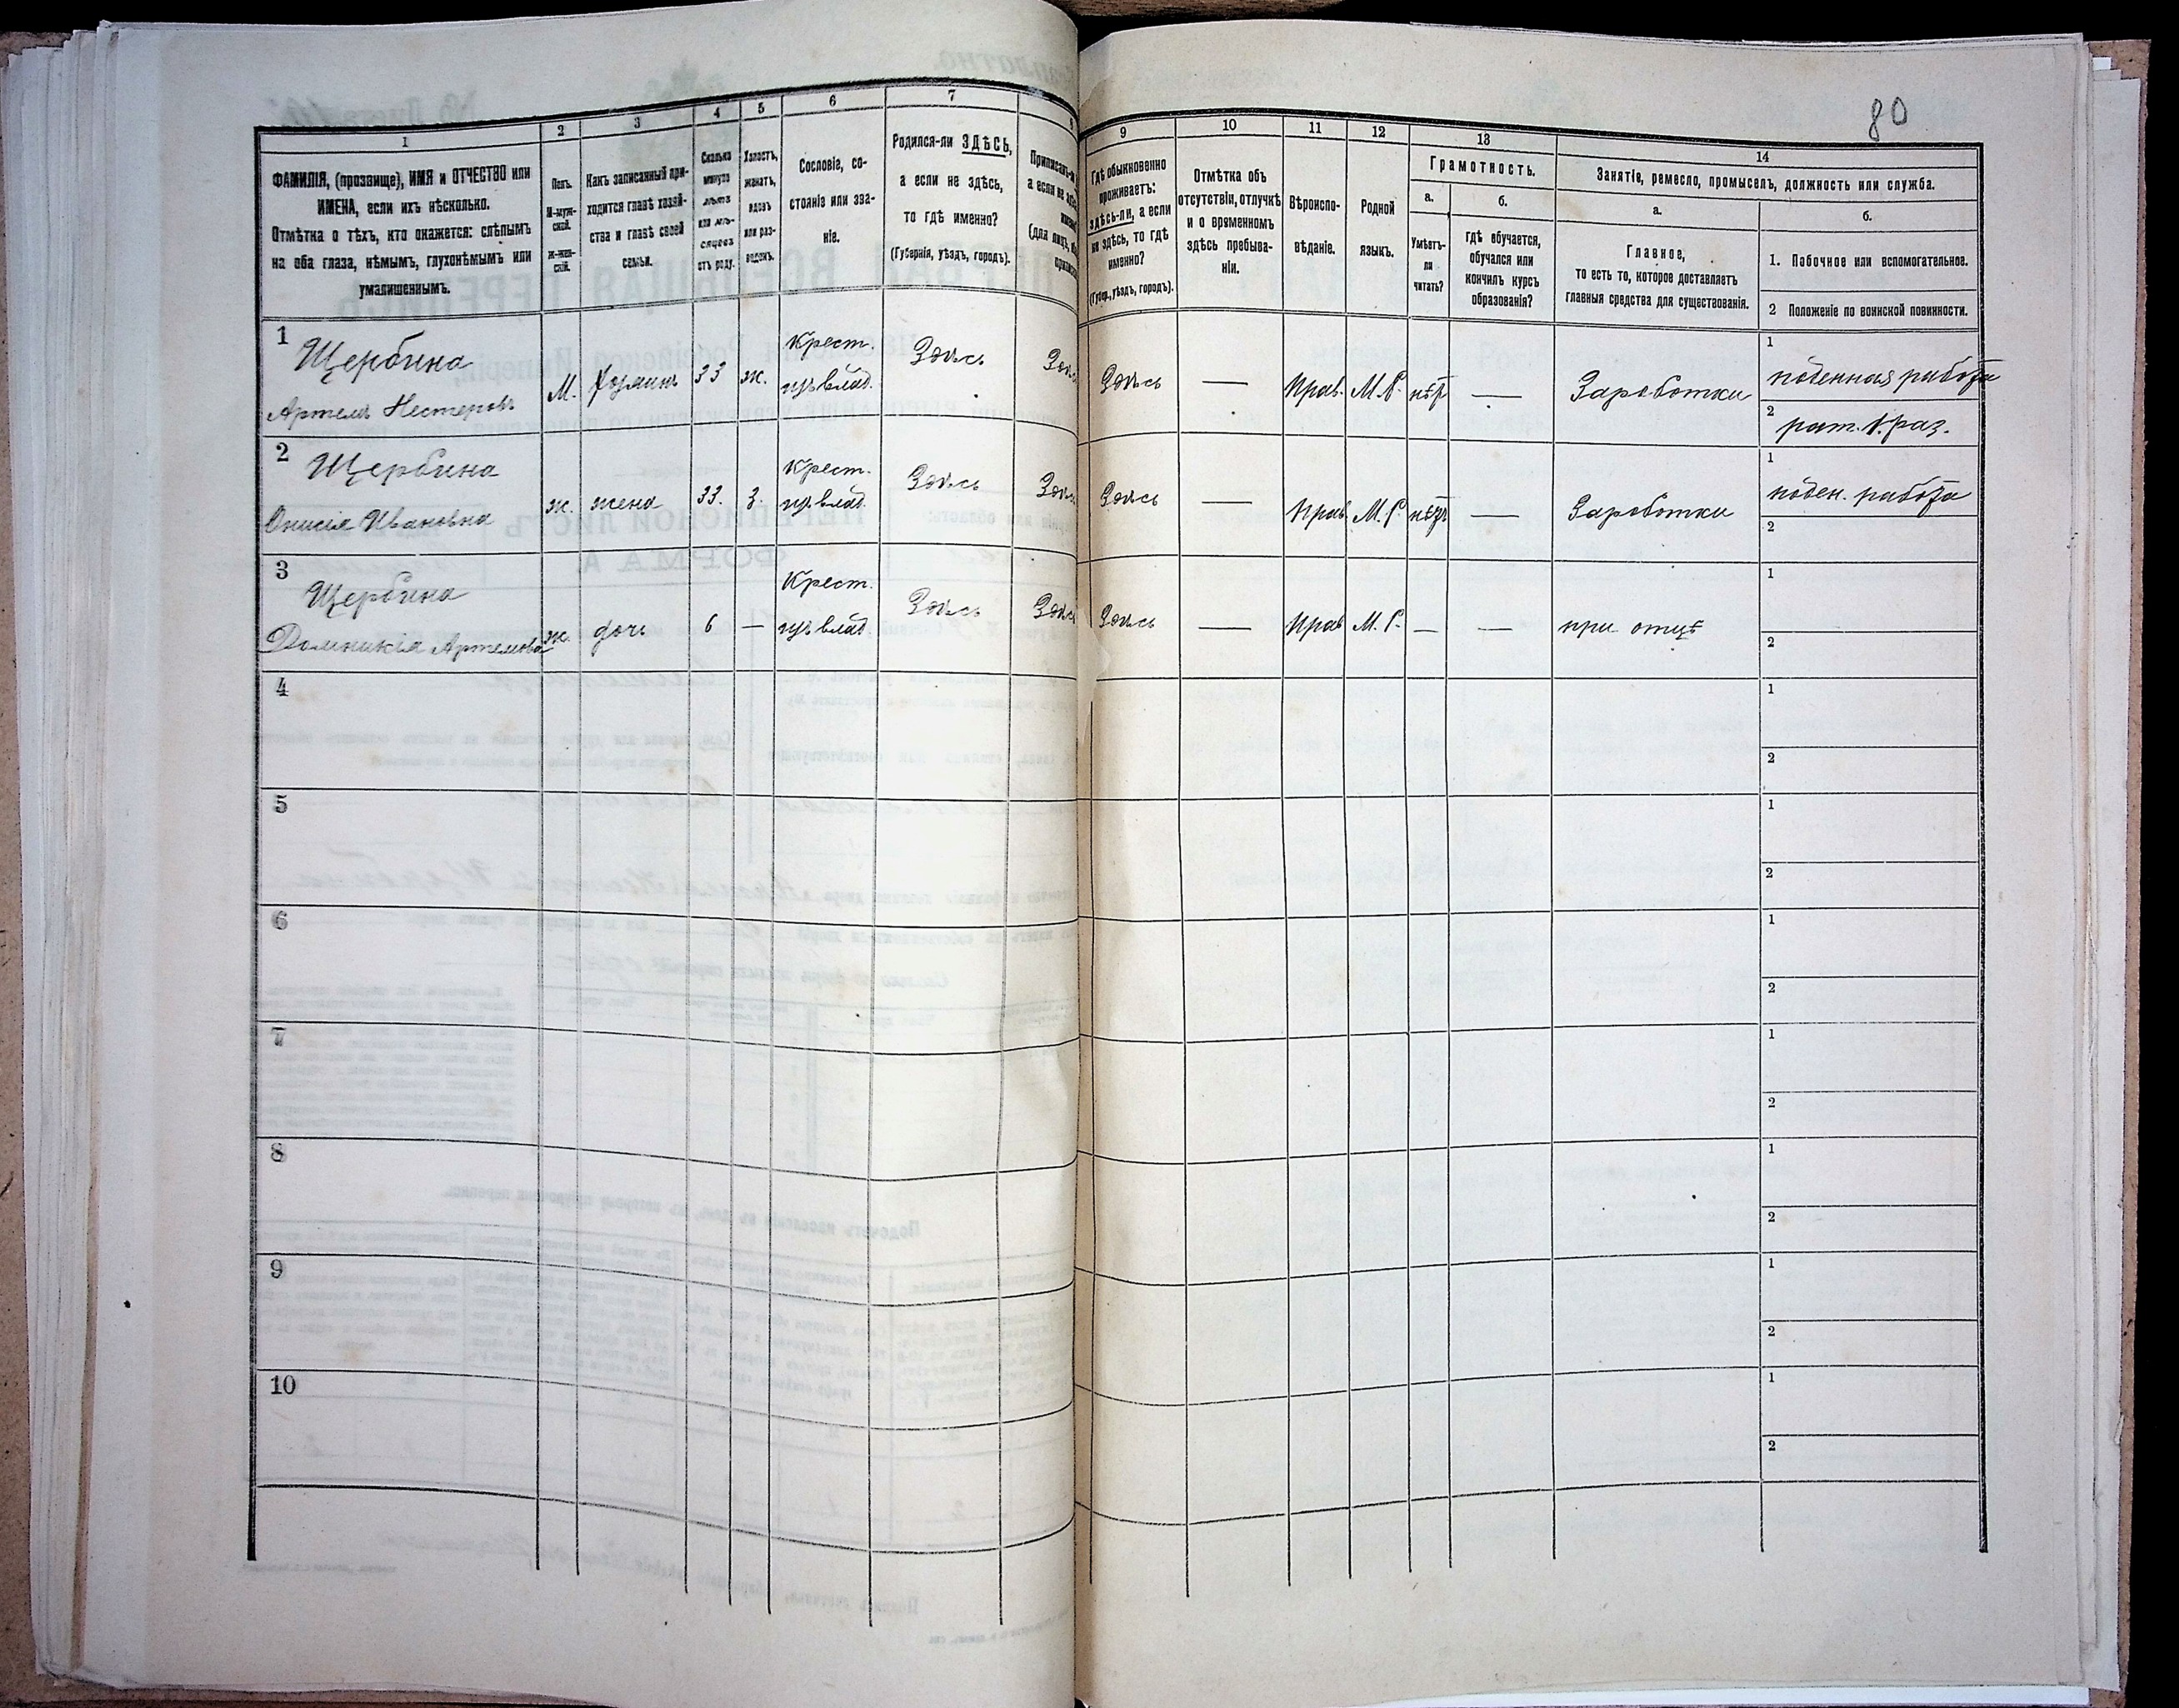 80
1
2
3
4
5
6
7
9
10
11
12
13
14
ФАМИЛІЯ, (прозвище), ИМЯ и ОТЧЕСТВО или
ИМЕНА, если ихъ нѣсколько.
Отмѣтка о тѣхъ, кто окажется: слѣпымъ
на оба глаза, нѣмымъ, глухонѣмымъ или
умалишеннымъ.
Полъ.
М-муж-
ской.
ж-жен-
скій.
Какъ записанный при-
ходится главѣ хозяй-
ства и главѣ своей
семьи.
Сколько
минуло
лѣтъ
или мѣ-
сяцевъ
отъ роду.
Холостъ,
женатъ,
вдовъ
или раз-
веденъ.
Сословіе, со-
стояніе или зва-
ніе.
Родился-ли ЗДѢСЬ,
а если не здѣсь,
то гдѣ именно?
(Губернія, уѣздъ, городъ).
Гдѣ обыкновенно
проживаетъ:
здѣсь-ли, а если
не здѣсь, то гдѣ
именно?
(Губер., уѣздъ, городъ).
Отмѣтка объ
отсутствіи, отлучкѣ
и о временномъ
здѣсь пребыва-
ніи.
Вѣроиспо-
вѣданіе.
Родной
языкъ.
Грамотность.
а.
б.
Умѣетъ-
ли
читать?
гдѣ обучается,
обучался или
кончилъ курсъ
образованія?
Занятіе, ремесло, промыселъ, должность или служба.
а.
б.
Главное,
то есть то, которое доставляетъ
главныя средства для существованія.
1. Побочное или вспомогательное.
2 Положеніе по воинской повинности.
1
Щербина
Артемъ Нестеровъ
М.
хозяинъ
33
ж.
Крест.
изъ влад.
Здѣсь
Здѣсь
—
Прав.
М.Р.
нѣт
—
Заработки
1
поденная работа
2
рат. 1. раз.
2
Щербина
Онисія Ивановна
ж.
жена
33.
З.
Крест.
изъ влад.
Здѣсь
Здѣсь
Здѣсь
—
Прав.
М.Р.
нѣтъ
—
Заработки
1
поден. работа
2
3
Щербина
Домникія Артемова
ж.
дочь
6
—
Крест.
изъ влад.
Здѣсь
Здѣсь
Здѣсь
—
Прав
М.Р.
—
—
при отцѣ
1
2
4
1
2
5
1
2
6
1
2
7
1
2
8
1
2
9
1
2
10
1
2